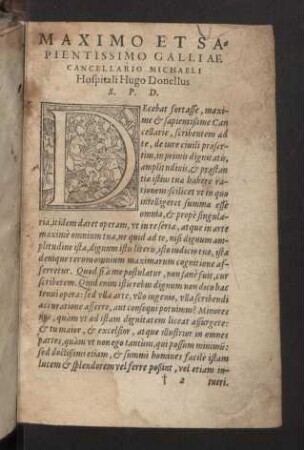 MAXIMO ET SA-
PIENTISSIMO GALLIAE
CANCELLARIO MICHAELI
Hospitali Hugo Donellus
S. P. D.
DEcebat fortasse, maxi-
me & sapientissime Can
cellarie, scribentem ad
te, de iure ciuili præser-
tim, in primis dignitatis,
amplitudinis, & præstan
tiæ istius tuæ habere ra-
tionem: scilicet vt in quo
intelligeret summa esse
omnia, & propè singula-
ria, ii idem daret operam, vt inte seria, atque in arte
maximè omnium tua, ne quid ad te, nisi dignum am-
plitudine ista, dignum isto libero, isto iudicio tuo, ista
denique rerum omnium maximarum cognitione af-
ferretur. Quod si à me postulatur, non sanè fuit, cur
scriberem. Quid enim istis rebus dignum non dico hac
tenui opera: sed vlla arte, vllo ingenio, vlla scribendi
accuratione afferre, aut consequi potuimus? Minores
, quàm vt ad istam dignitatem liceat assurgere:
& tu maior, & excelsior, atque illustrior in omnes
partes, quàm vt non ego tantùm, qui possum minimùm:
sed doctissimi etiam, & summi homines facilè istam
lucem & splendorem vel ferre possint, vel etiam in-
† 2 tueri.